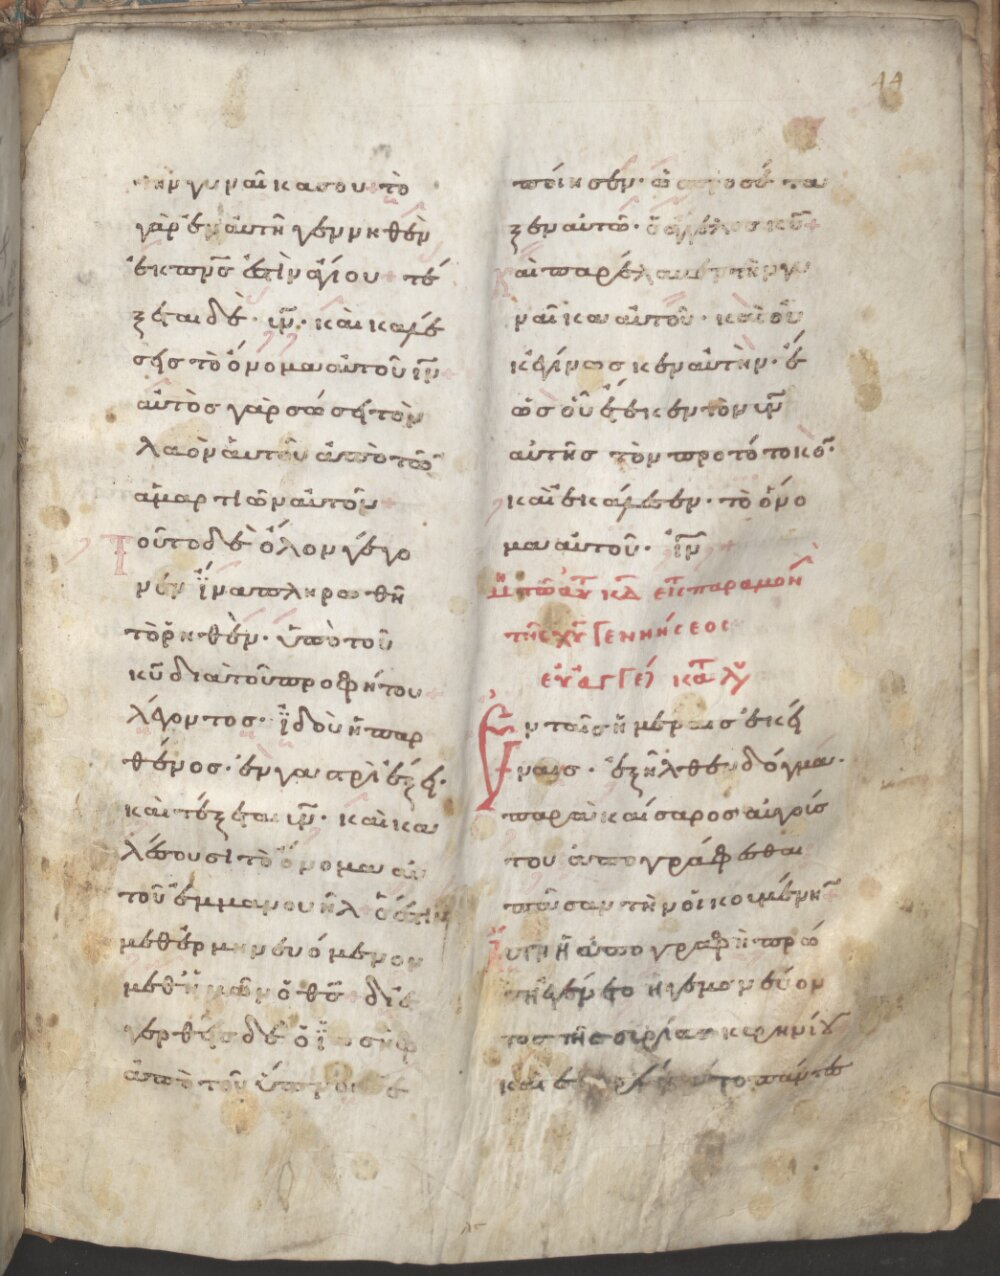 44
τὴν γυναῖκα σου· τὸ
γὰρ ἐν αὐτῆ γεννηθὲν
ἐκ πν̅ς ἐστὶν ἁγίου + τέ
ξεται δὲ· υν̅· καὶ καλέ
σεις τὸ ὄνομα αὐτοῦ ιν̅ +
αὐτὸς γὰρ σώσει τὸν
λαὸν αὐτοῦ ἀπὸ τῶ
ἁμαρτιῶν αὐτοῦ +
Τοῦτο δὲ ὅλον γέγο
νεν ἵνα πληρωθῆ
τὸ ῥηθὲν· ὑπὸ τοῦ
κυ̅ διὰ τοῦ προφήτου +
λέγοντος· ἰδοὺ ἡ παρ
θένος· ἐν γαστρὶ ἕξει·
καὶ τέξεται υν̅· καὶ κα
λέσουσι τὸ ὄνομα αὐ
τοῦ ἐμμανουήλ + ὅ ἐστιν
μεθερμηνευόμενον
μεθ' ἡμῶν ὁ θς̅ + διε
γερθεὶς δὲ ὁ ἰωσὴφ
ἀπὸ τοῦ ὕπνου ἐ
ποίησεν· ὡς προσέτα
ξεν αὐτῶ· ὁ ἄγγελος κυ̅ +
καὶ παρέλαβεν τὴν γυ
ναῖκα αὐτοῦ· καὶ οὐ
κ ἐγίνωσκεν αὐτὴν· ἕ
ως οὗ ἔτεκεν τὸν υν̅
αὐτῆς τὸν πρωτότοκο̅·
καὶ ἐκάλεσεν· τὸ ὄνο
μα αὐτοῦ· ιν̅ +
κδ εἰς παραμονὴ
τῆς χυ̅ γεννήσεος
εὐαγγέλ κατ λουκ
Ἐν ταῖς ἡμέραις ἐκεί
ναις· ἐξῆλθεν δόγμα·
παρὰ καίσαρος αὐγούσ
του ἀπογράφεσθαι
πᾶσαν τὴν οἰκουμένη̅ +
αὕτη ἡ ἀπογραφὴ πρώ
τη ἐγένετο ἡγεμονεύον
τος τῆς συρίας κυρηνίου
καὶ ἐπορεύοντο πάντες